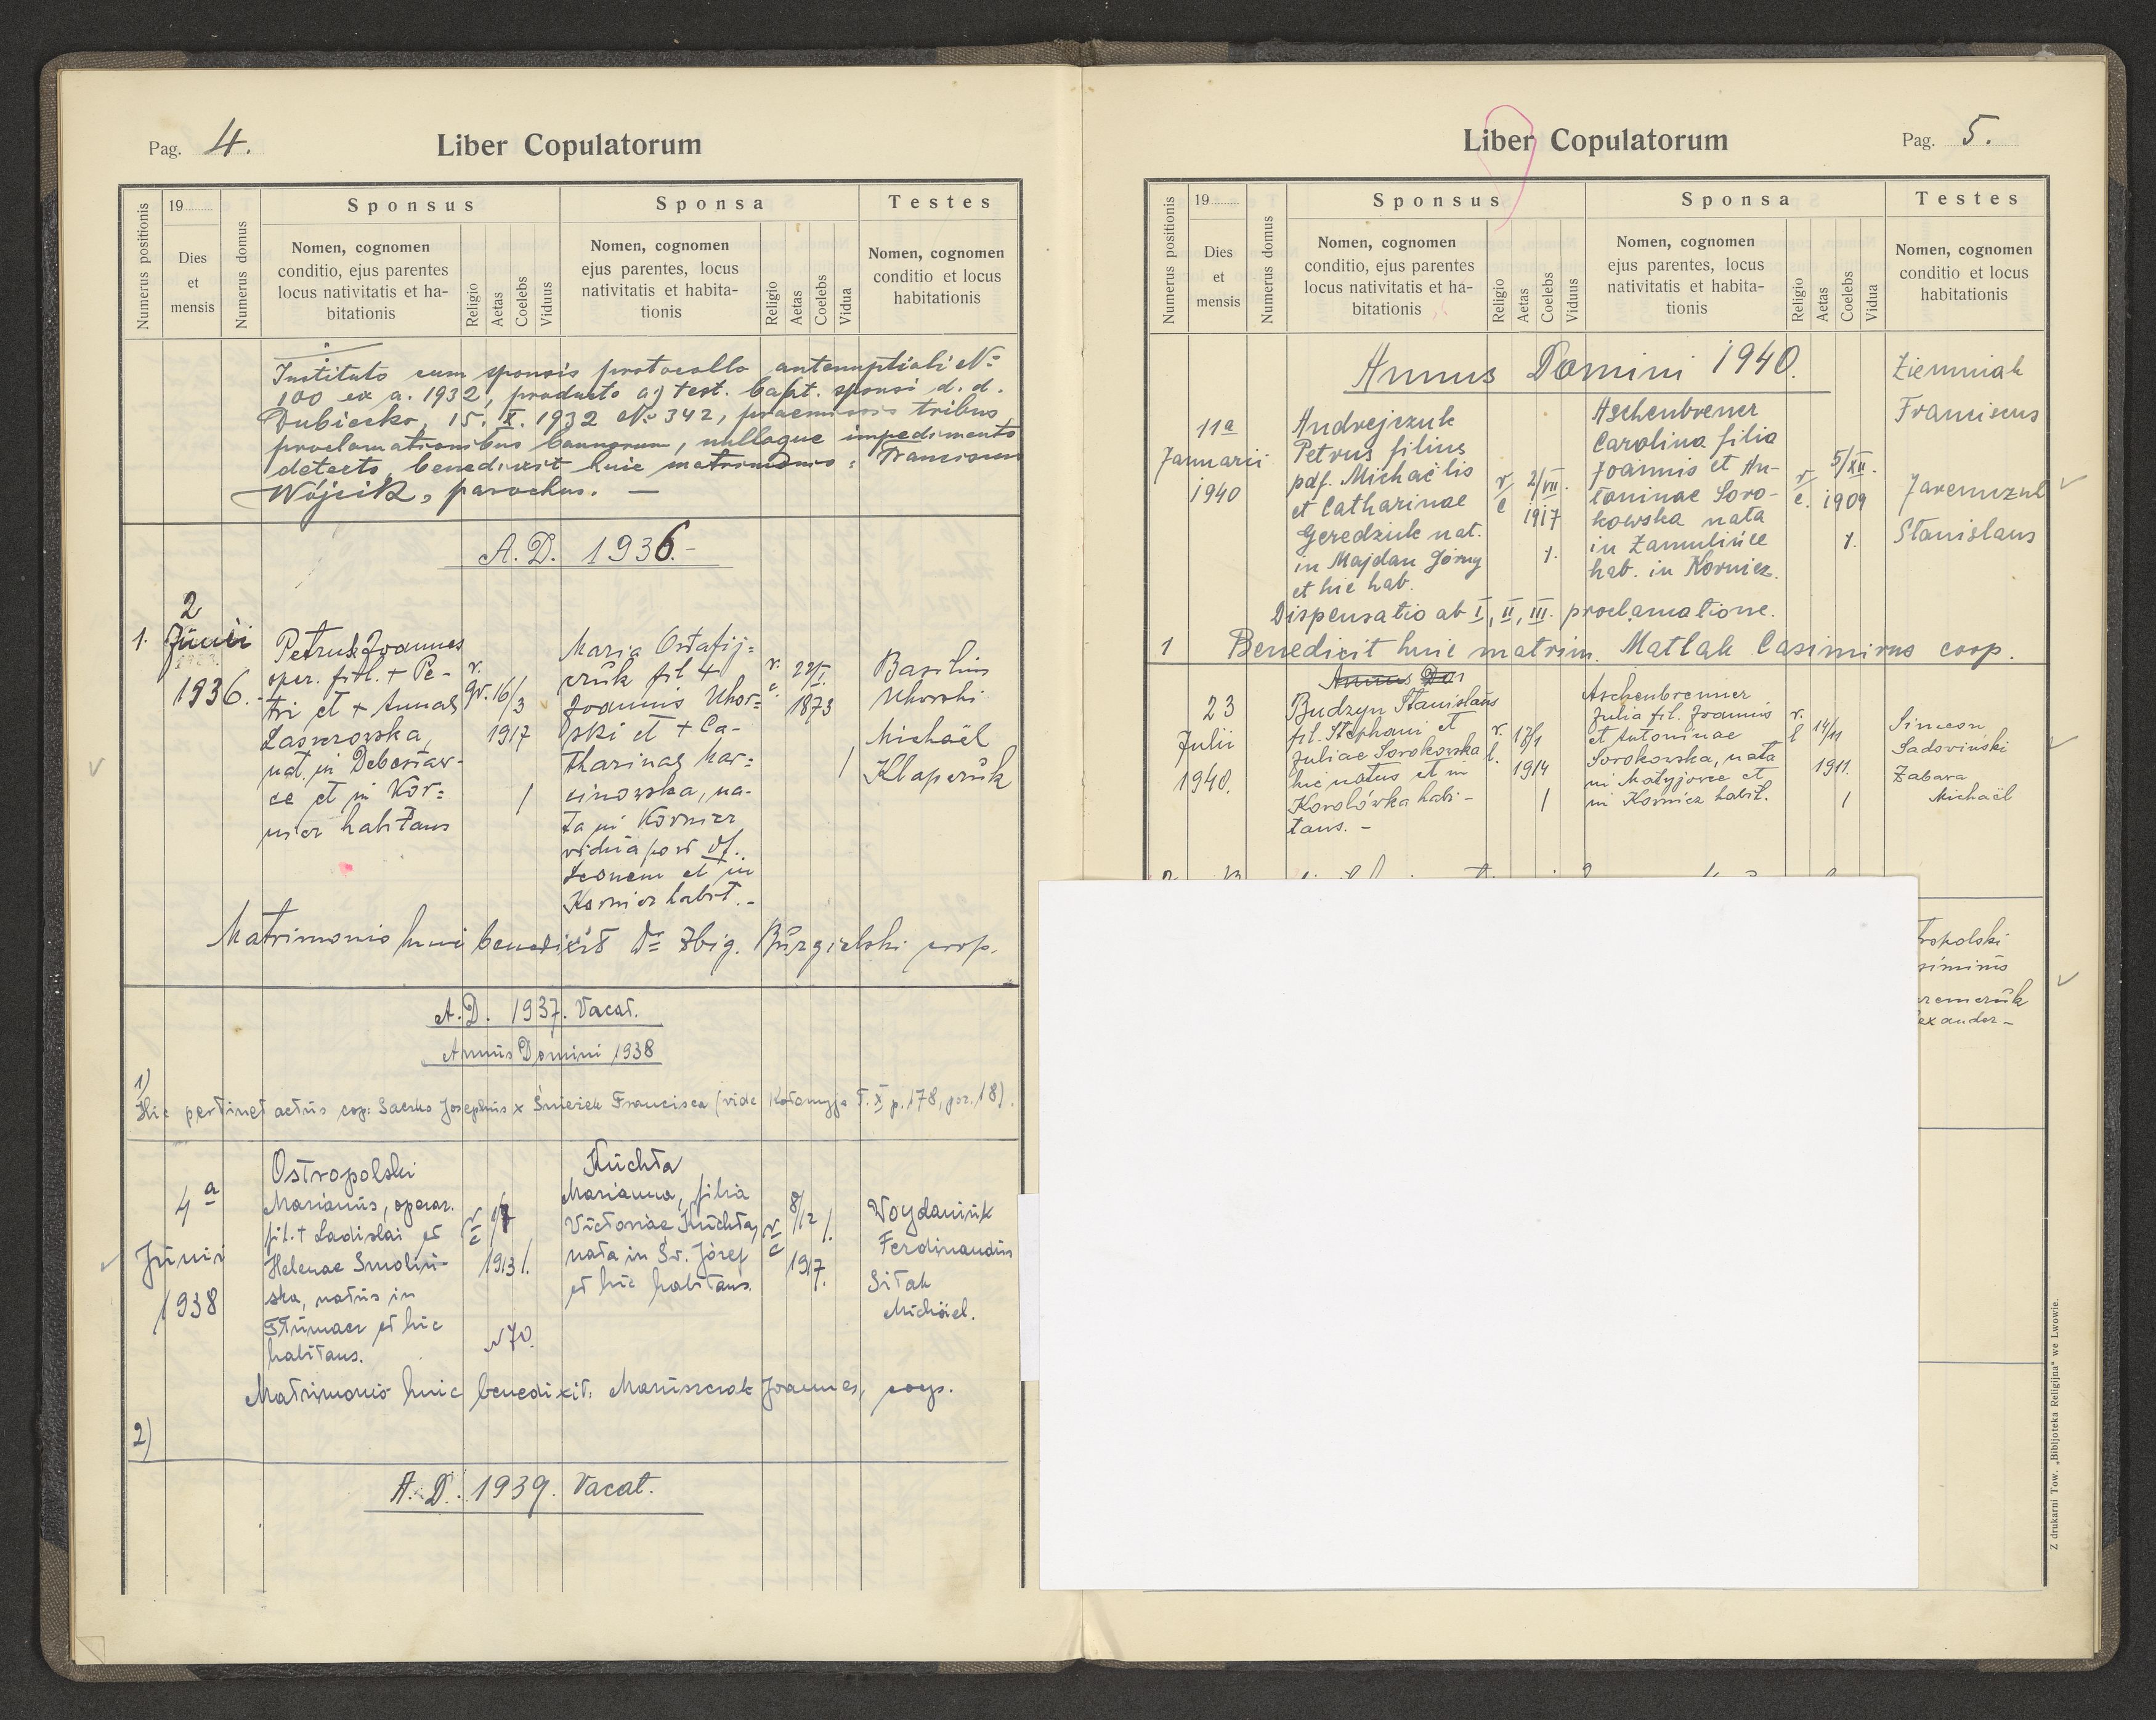 Pag. 4.
Liber Copulatorum
Numerus positionis
19
Dies
et
mensis
Numerus domus
Sponsus
Nomen, cognomen
conditio, ejus parentes
locus nativitatis et ha-
bitationis
Religio
Aetas
Coelebs
Viduus
Sponsa
Nomen, cognomen
ejus parentes, locus
nativitatis et habita-
tionis
Religio
Aetas
Coelebs
Vidua
Testes
Nomen, cognomen
conditio et locus
habitationis
Instituto cum sponsis protocollo antenuptiali No
100 ex a. 1932, producto a) test. bapt. sponsi d. d.
Dubiecko, 15. X. 1932 No 342, praemissis tribus
proclamationibus bannorum, nulloque impedimento
detecto, benedixit huic matrimonio: Franciscus
Wójcik, parochus. —
A. D. 1936.-
1.
2
Junii
1936.-
Petruk Joannes
oper. fil. + Pe-
tri et + Annae
nat. in Debesław-
ce et in Kor=
nicz habitans
r.
gr. 16/3
1917
/
Maria Ostafij=
czuk fil +
Joannis Uhor=
ski et + Ca-
tharinae Mar=
cinowska, na-
ta in Kornicz
vidua post df.
Leonem et in
Kornicz habit.-
r.
c.
22/I.
1873
/
Basilius
Uhorski
Michaël
Klapczuk
Matrimonio huic benedixit Dr Zbig. coop.
A. D. 1937. Vacat.
Annus Domini 1938
1)
Hic pertinet actus cop: Saczko Josephus x Śnieżek Francisca (vide Kołomyja T. XI p. 178, poz. 18).
4a
Junii
1938
Ostropolski
Marianus, operar.
fil. + Ladislai et
Helenae Smoliń-
ska, natus in
Tłumacz et hic
habitans.
r
c
1913 /.
N 70.
Kuchta
Marianna, filia
Victoriae Kuchta,
nata in Św. Józef
et hic habitans.
r
c
8/12 /.
1917.
Woydaniuk
Ferdinandus
Sitak
Michäel.
Matrimonio huic benedixit: Maruszczak Joannes, coop.
2)
A. D. 1939. Vacat.
Liber Copulatorum
Pag. 5.
Numerus positionis
19
Dies
et
mensis
Numerus domus
Sponsus
Nomen, cognomen
conditio, ejus parentes
locus nativitatis et ha-
bitationis
Religio
Aetas
Coelebs
Viduus
Sponsa
Nomen, cognomen
ejus parentes, locus
nativitatis et habita-
tionis
Religio
Aetas
Coelebs
Vidua
Testes
Nomen, cognomen
conditio et locus
habitationis
Annus Domini 1940.
11a
Januarii
1940
Andrejczuk
Petrus filius
pdf. Michaëlis
et Catharinae
Geredziuk nat.
in Majdan Górny
et hic hab.
r
c
2/VII.
1917
/.
Aschenbrener
Carolina filia
Joannis et An-
toninae Soro-
kowska nata
in Zamulińce
hab. in Kornicz.
r
c.
5/XII.
1909
/.
Ziemniak
Franciscus
Jaremczuk
Stanislaus
Dispensatio ab I, II, III. proclamatione.
1 Benedixit huic matrim. Matlak Casimirus coop.
23
Julii
1940.
Budzyn Stanislaus
fil. Stephani et
Juliae Sorokowska
hic natus et in
Korolówka habi-
tans. -
r.
l.
1914
/
Aschenbrenner
Julia fil. Joannis
et Antoninae
Sorokowska, nata
in Matyjowce et
in Kornicz habit.
r.
l
14/11
1911.
/
Simeon
Sadowiński
Zabara
Michaël
Z drukarni Tow. „Bibljoteka Religijna" we Lwowie.